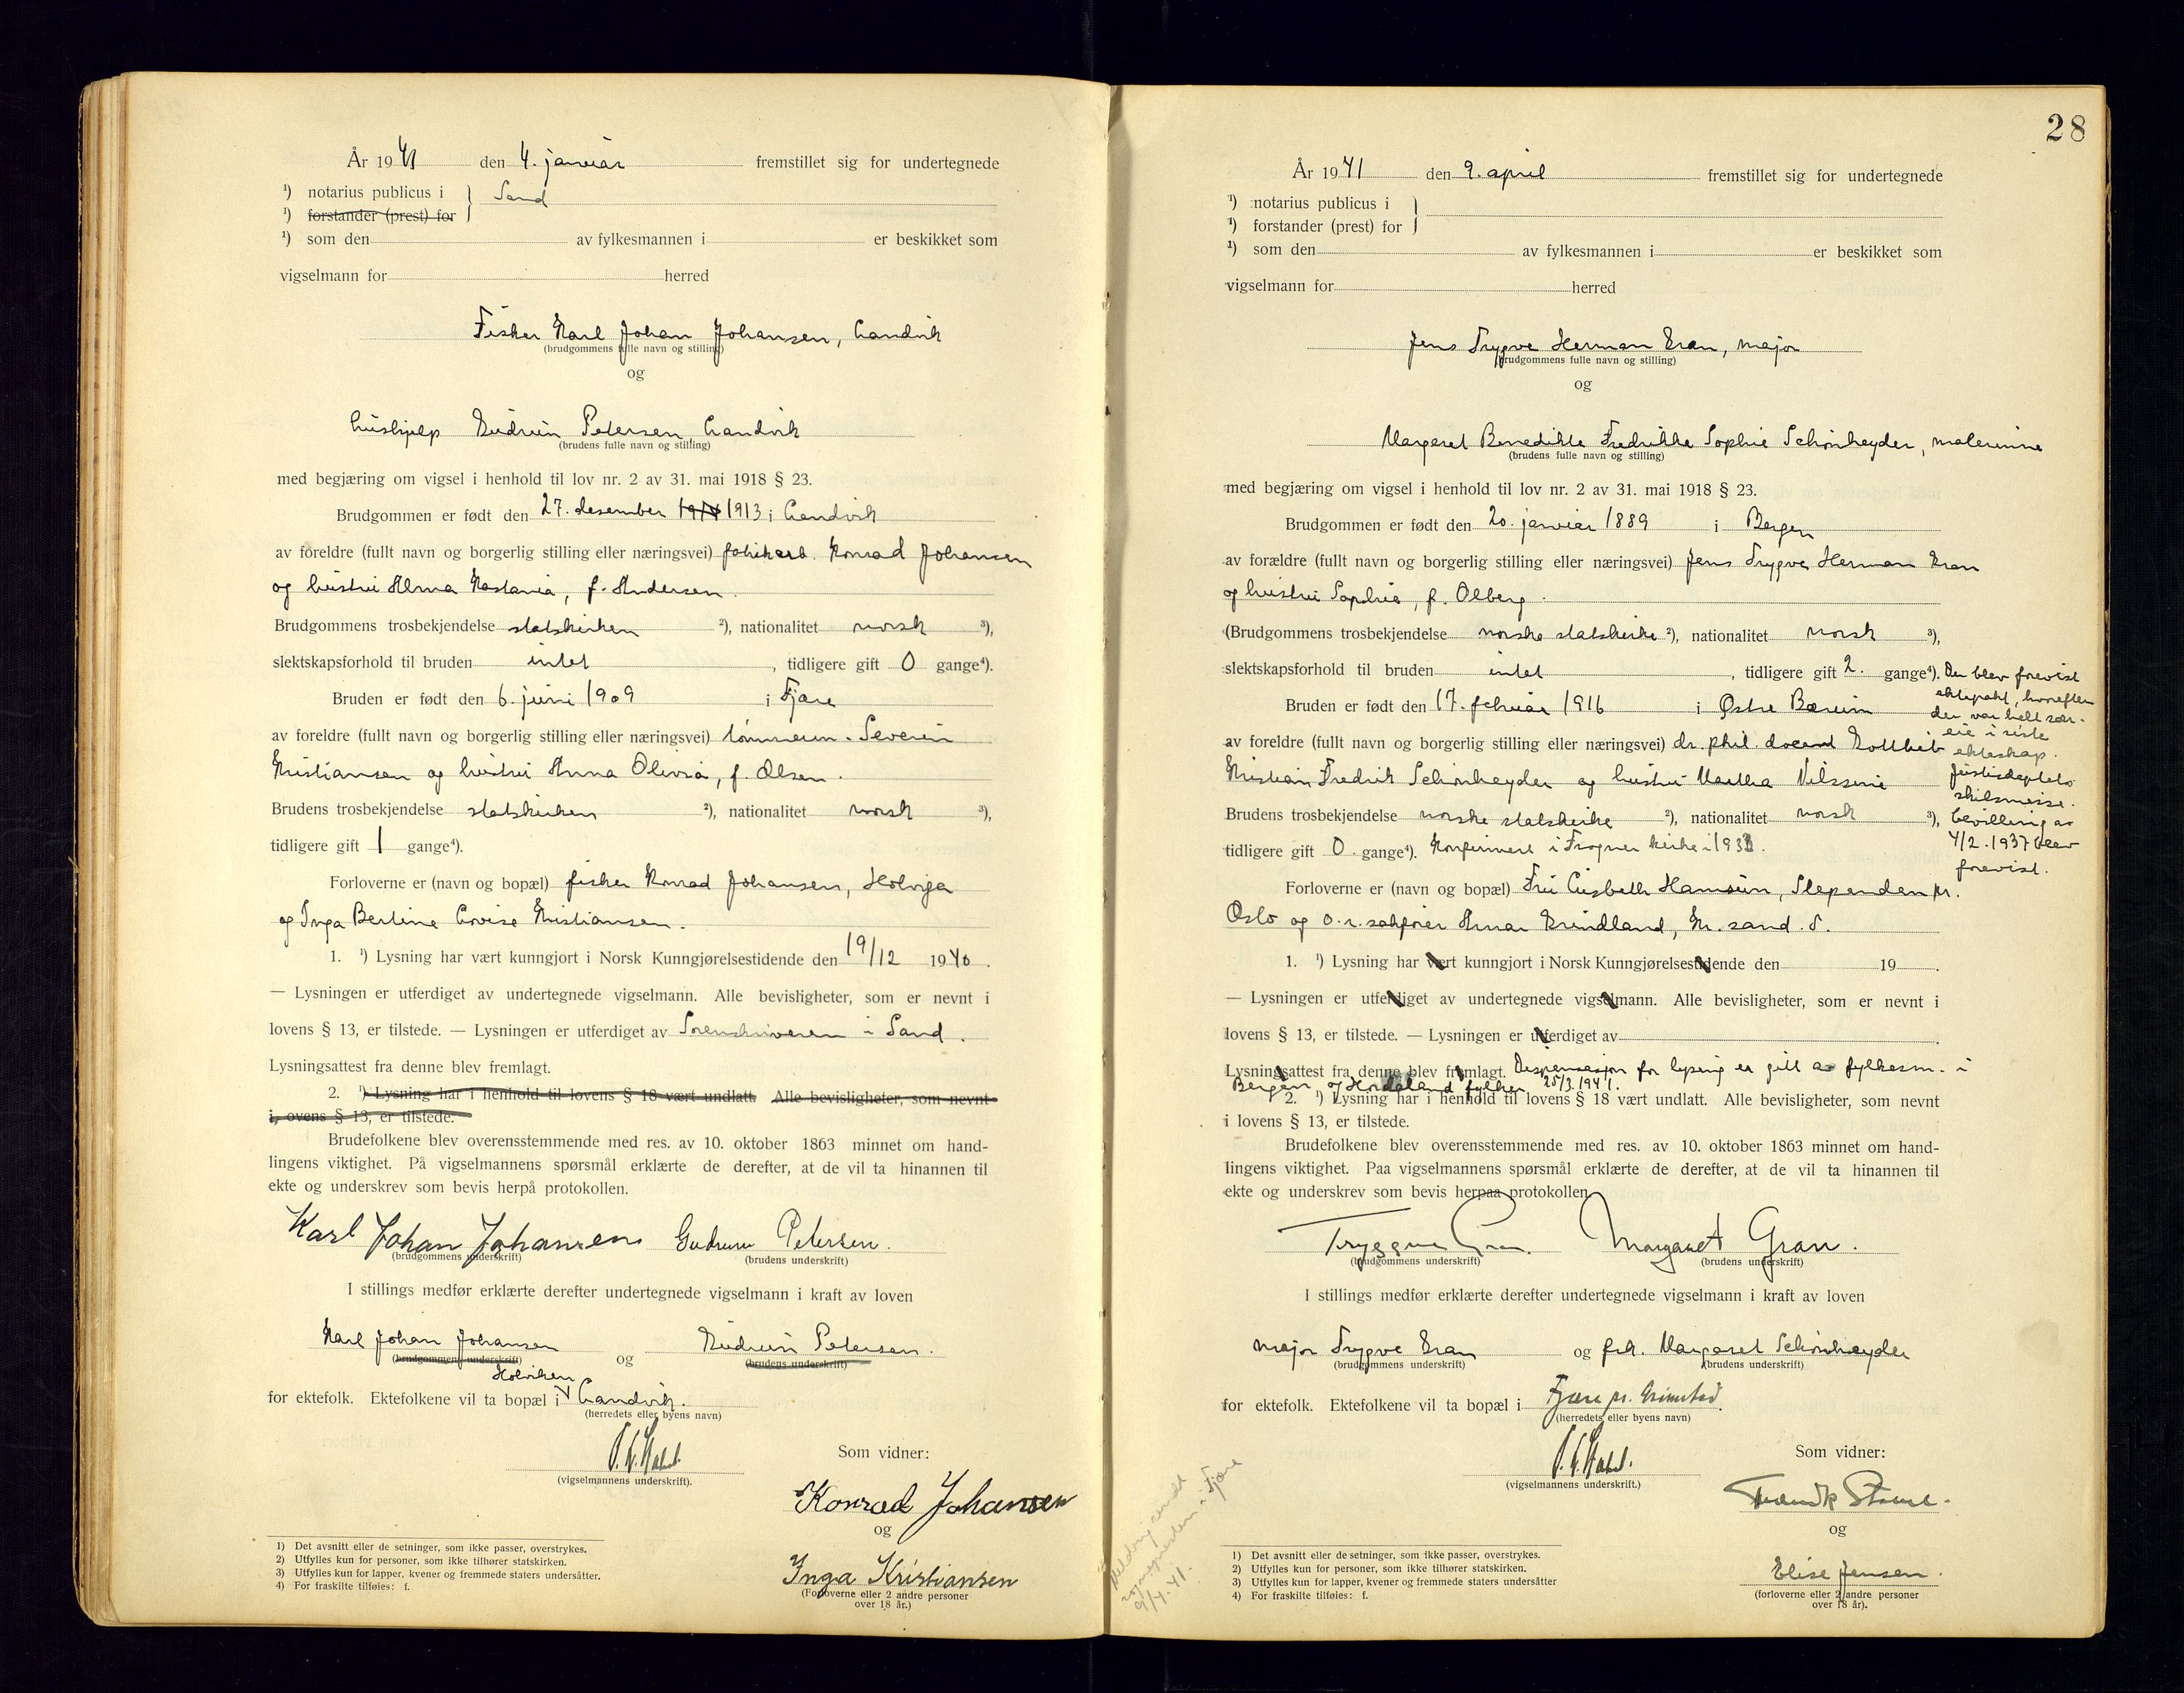 År 1941 den 4. januar fremstillet sig for undertegnede
¹) notarius publicus i } Sand
¹) forstander (prest) for
¹) som den av fylkesmannen i er beskikket som
vigselmann for herred
Fisker Karl Johan Johansen, Landvik
(brudgommens fulle navn og stilling)
og
hushjelp Gudrun Petersen Landvik
(brudens fulle navn og stilling)
med begjæring om vigsel i henhold til lov nr. 2 av 31. mai 1918 § 23.
Brudgommen er født den 27. desember 1914 1913 i Landvik
av foreldre (fullt navn og borgerlig stilling eller næringsvei) fabrikarb. Konrad Johansen
og hustru Alma Kastania, f. Andersen.
Brudgommens trosbekjendelse statskirken ²), nationalitet norsk ³),
slektskapsforhold til bruden intet, tidligere gift 0 gange⁴).
Bruden er født den 6. juni 1909 i Fjære
av foreldre (fullt navn og borgerlig stilling eller næringsvei) tømmerm. Severin
Kristiansen og hustru Anna Olivia, f. Olsen.
Brudens trosbekjendelse statskirken ²), nationalitet norsk ³),
tidligere gift 1 gange⁴).
Forloverne er (navn og bopæl) fisker Konrad Johansen, Holviga
og Inga Bertine Lovise Kristiansen.
1. ¹) Lysning har vært kunngjort i Norsk Kunngjørelsestidende den 19/12 1940.
— Lysningen er utferdiget av undertegnede vigselmann. Alle bevisligheter, som er nevnt i
lovens § 13, er tilstede. — Lysningen er utferdiget av Sorenskriveren i Sand.
Lysningsattest fra denne blev fremlagt.
2. ¹) Lysning har i henhold til lovens § 18 vært undlatt. Alle bevisligheter, som nevnt
i, ovens § 13, er tilstede.
Brudefolkene blev overensstemmende med res. av 10. oktober 1863 minnet om hand-
lingens viktighet. På vigselmannens spørsmål erklærte de derefter, at de vil ta hinannen til
ekte og underskrev som bevis herpå protokollen.
Karl Johan Johansen Gudrun Petersen.
(brudgommens underskrift) (brudens underskrift)
I stillings medfør erklærte derefter undertegnede vigselmann i kraft av loven
Karl Johan Johansen og Gudrun Petersen.
(brudgommens underskrift) (brudens underskrift)
Holviken
for ektefolk. Ektefolkene vil ta bopæl i Landvik.
(herredets eller byens navn)
Som vidner:
(vigselmannens underskrift).
Konrad Johansen
og
Inga Kristiansen
(Forloverne eller 2 andre personer
over 18 år.)
1) Det avsnitt eller de setninger, som ikke passer, overstrykes.
2) Utfylles kun for personer, som ikke tilhører statskirken.
3) Utfylles kun for lapper, kvener og fremmede staters undersåtter.
4) For fraskilte tilføies: f.
28
År 1941 den 9. april fremstillet sig for undertegnede
¹) notarius publicus i }
¹) forstander (prest) for
¹) som den av fylkesmannen i er beskikket som
vigselmann for herred
Jens Trygve Herman Gran, major
(brudgommens fulle navn og stilling)
og
Margaret Benedikte Fredrikke Sophie Schønheyder, malerinne
(brudens fulle navn og stilling)
med begjæring om vigsel i henhold til lov nr. 2 av 31. mai 1918 § 23.
Brudgommen er født den 20. januar 1889 i Bergen
av forældre (fullt navn og borgerlig stilling eller næringsvei) Jens Trygve Herman Gran
og hustru Sophie, f. Olberg.
(Brudgommens trosbekjendelse norske statskirke ²), nationalitet norsk ³),
slektskapsforhold til bruden intet, tidligere gift 2. gange⁴).
Der blev forevist
ektepakt, hvorefter
der var helt sær-
eie i siste
ekteskap.
Justisdeptets
skilsmisse-
bevilling av
4/2. 1937 blev
forevist.
Bruden er født den 17. februar 1916 i Østre Bærum
av foreldre (fullt navn og borgerlig stilling eller næringsvei) dr. phil. docent Gottlieb
Kristian Fredrik Schønheyder og hustru Martha Nilssine
Brudens trosbekjendelse norske statskirke ²), nationalitet norsk ³),
tidligere gift 0 gange⁴). Konfirmert i Frogner kirke i
Forloverne er (navn og bopæl) Fru Lisbeth Hamsun, Slependen pr.
Oslo og o.r.sakfører Arnar Grindland, Kr. sand. S.
1. ¹) Lysning har vært kunngjort i Norsk Kunngjørelsestidende den 19 .
— Lysningen er utferdiget av undertegnede vigselmann. Alle bevisligheter, som er nevnt i
lovens § 13, er tilstede. — Lysningen er utferdiget av .
Lysningsattest fra denne blev fremlagt. Dispensasjon for lysning er gitt av fylkesm. i
Bergen og Hordaland fylker 25/3.1941.
2. ¹) Lysning har i henhold til lovens § 18 vært undlatt. Alle bevisligheter, som nevnt
i lovens § 13, er tilstede.
Brudefolkene blev overensstemmende med res. av 10. oktober 1863 minnet om hand-
lingens viktighet. Paa vigselmannens spørsmål erklærte de derefter, at de vil ta hinannen til
ekte og underskrev som bevis herpaa protokollen.
Tryggve Gran. Margaret Gran.
(brudgommens underskrift) (brudens underskrift)
I stillings medfør erklærte derefter undertegnede vigselmann i kraft av loven
major Trygve Gran og frk. Margaret Schønheyder
(brudgommens underskrift) (brudens underskrift)
for ektefolk. Ektefolkene vil ta bopæl i Fjære pr. Grimstad.
(herredets eller byens navn)
Som vidner:
(vigselmannens underskrift.)
Fredrik
og
Elise Jensen.
(forloverne eller 2 andre personer
over 18 år).
1) Det avsnitt eller de setninger, som ikke passer, overstrykes.
2) Utfylles kun for personer, som ikke tilhører statskirken.
3) Utfylles kun for lapper, kvener og fremmede staters undersåtter
4) For fraskilte tilføies: f.
Melding sendt
sognepresten i Fjære
9/4.41.